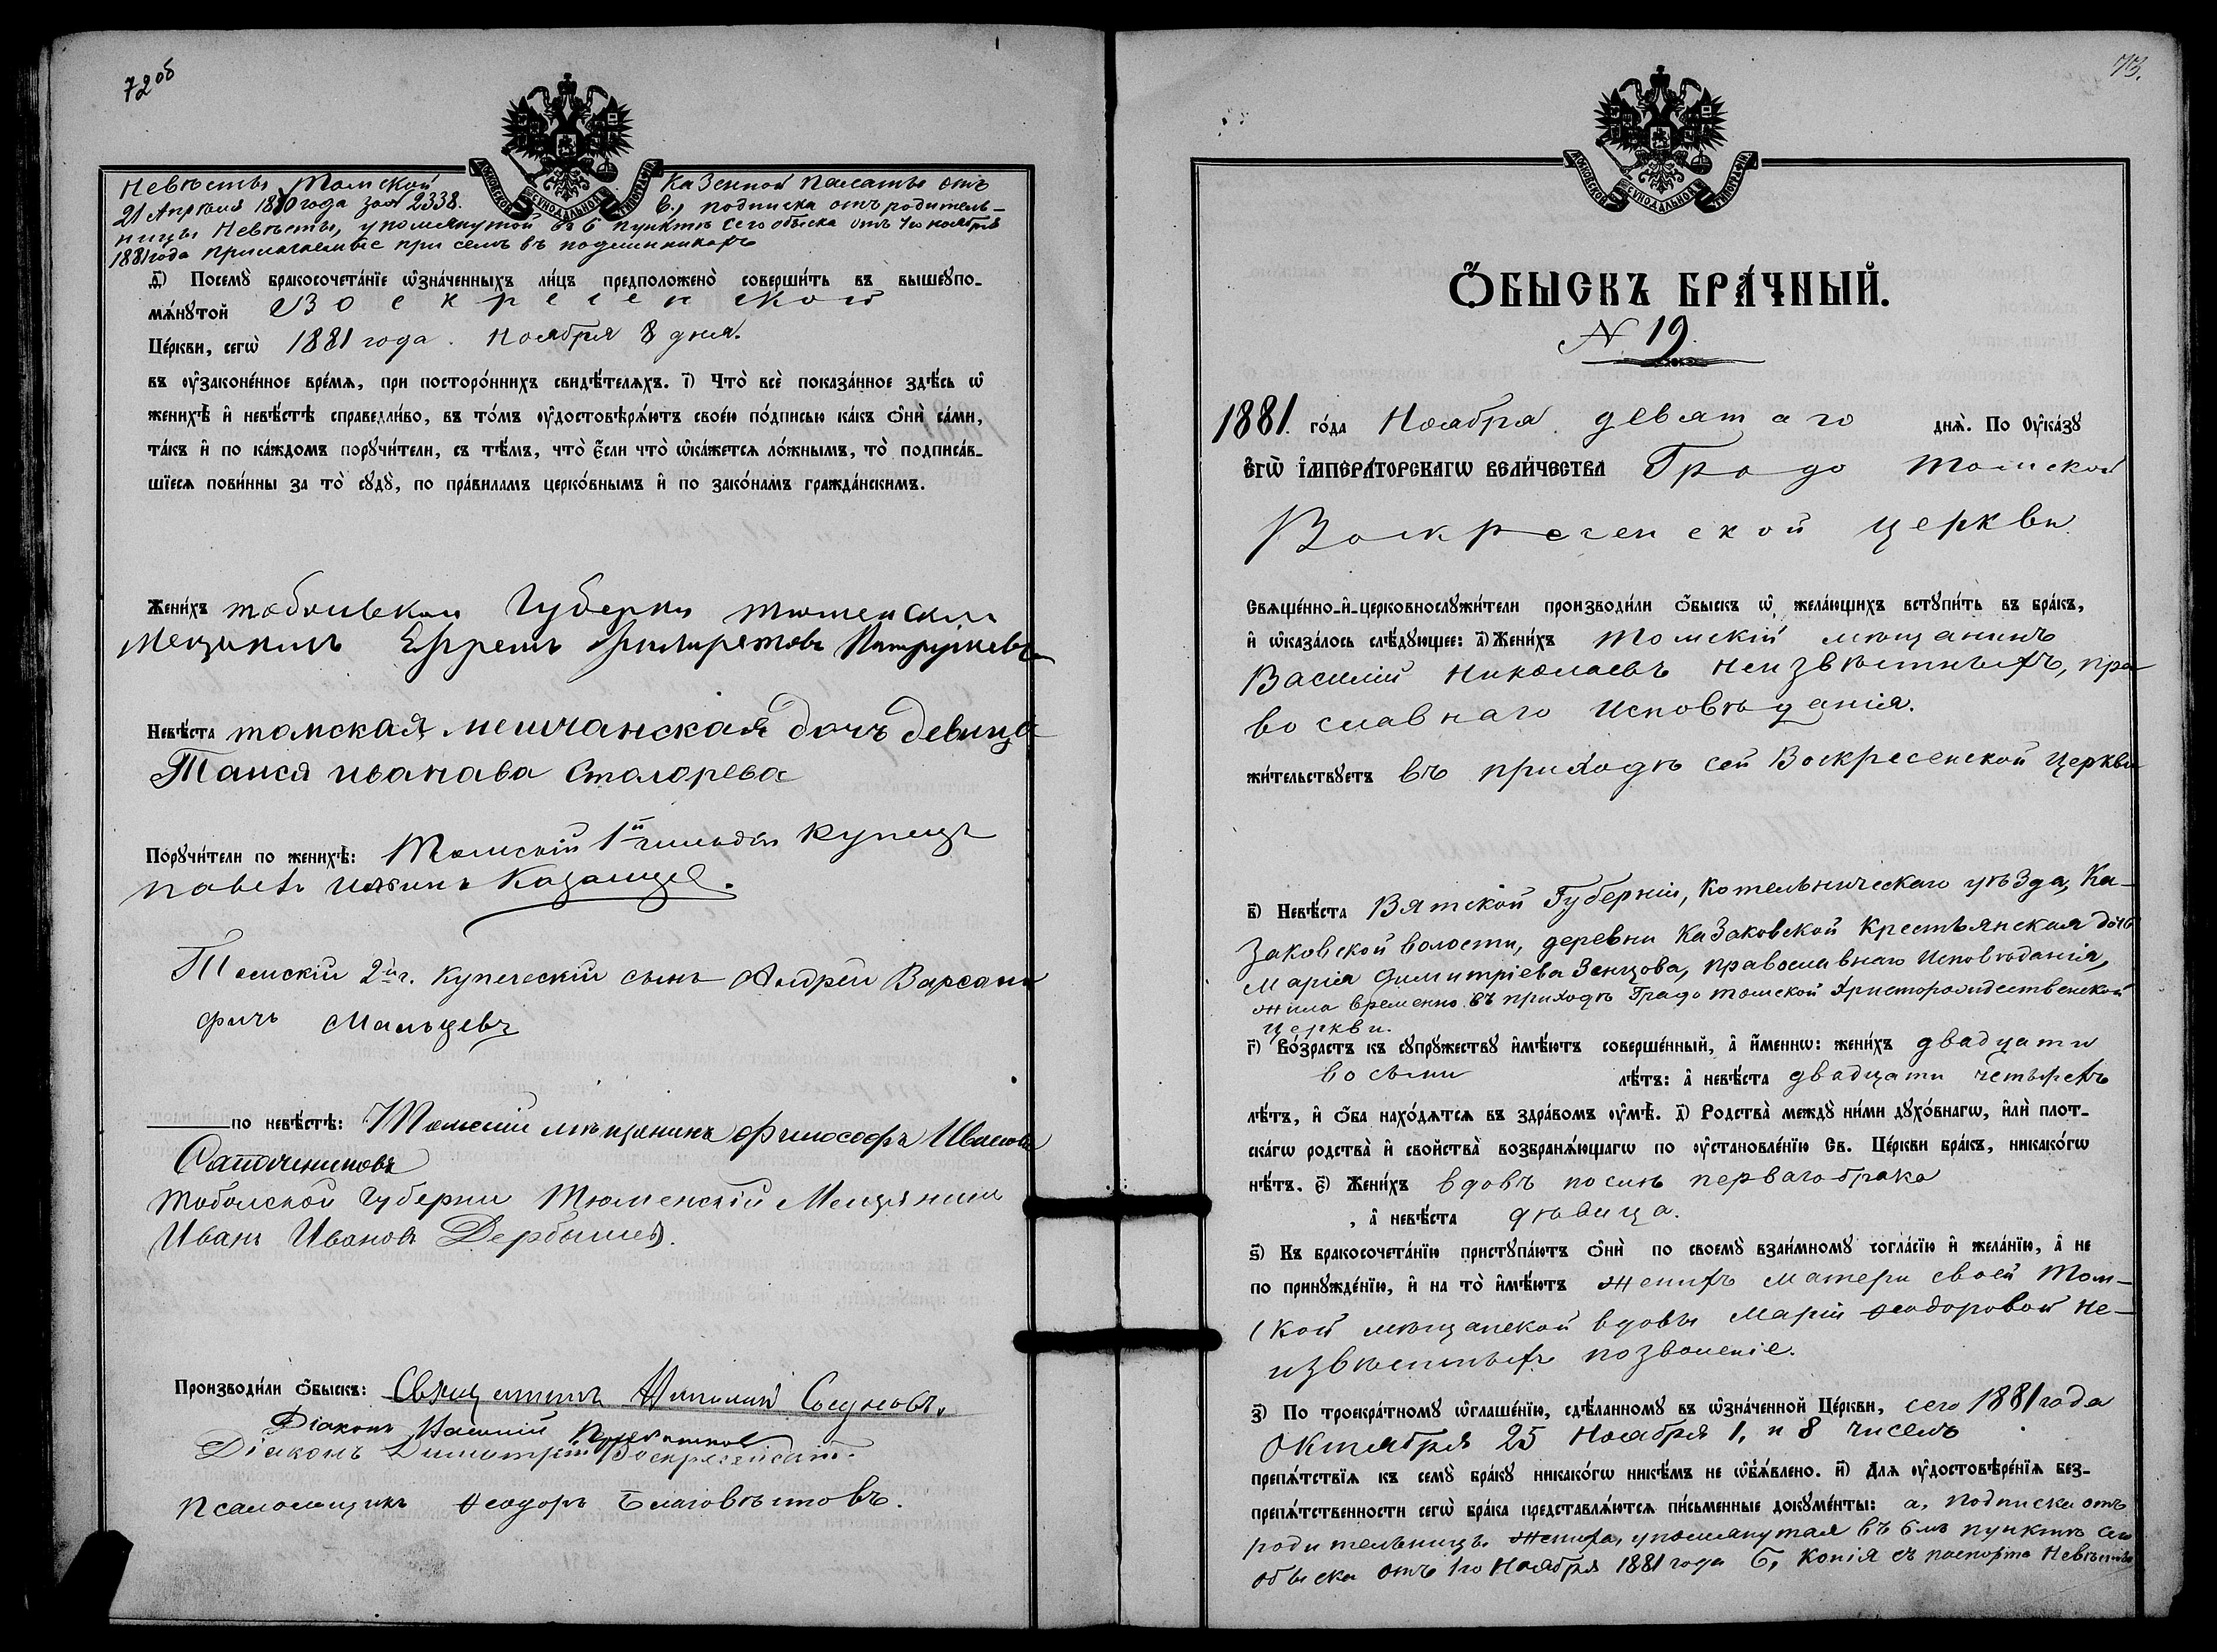 72об
МОСКОВСКОЙ СѴНОДАЛЬНОЙ ТИПОГРАФІИ
Невѣсты Томской Казенной Палаты отъ
21 Апрѣля 1880 года за № 2338. в., подписка отъ родитель-
ницы Невѣсты, упомянутой въ 6 пунктѣ сего обыска отъ 1го ноября
1881 года прилагаемые при семъ въ подлинникахъ
д҃і) Посемꙋ̀ бракосочета́нїе ѡ҆зна́ченныхъ ли́цъ предположено̀ соверши́ть въ вышеꙋпо-
мѧ́нꙋтой Воскресенской
Це́ркви, сегѡ̀ 1881 года. Ноября 8 дня.
въ ᲂу҆законе́нное вре́мѧ, при посторо́ннихъ свидѣ́телѧхъ. і҃) Что̀ всѐ показа́нное здѣ́сь ѡ҆
женихѣ̀ и҆ невѣ́стѣ справедли́во, въ то́мъ ᲂу҆достовѣрѧ́ютъ свое́ю по́дписью ка́къ ѻ҆нѝ са́ми,
та́къ и҆ по ка́ждомъ порꙋчи́тели, съ тѣ́мъ, что̀ є҆́сли что̀ ѡ҆ка́жетсѧ ло́жнымъ, то̀ подписа́в-
шїесѧ пови́нны за то̀ сꙋдꙋ̀, по пра́виламъ церко́внымъ и҆ по зако́намъ гражда́нскимъ.
Жени́хъ тобольской Губерни тюменски
Мещанинъ Ефремъ Филаретовъ
Невѣ́ста томская мешчанская дочъ девица
Таися иванава Столорева
Порꙋчи́тели по женихѣ̀: Томскій 1й гильдіи Купецъ
павелъ Казанцев.
Томскій 2й г. купеческій сынъ Андрей Варсано
фичъ Мальцевъ
по невѣ́стѣ: Томскій мѣщанинъ Философъ Ивановъ
Сапожниковъ
Тобольской губерни Тюменскій Мещанинъ
Иванъ Ивановъ Дербышев.
Производи́ли ѻ҆́быскъ: Священникъ Николай Сосуновъ.
Діаконъ Василій
Діаконъ Димитрій Воскресенскій.
Псаломщикъ Ѳеодоръ Благовѣстовъ.
73.
МОСКОВСКОЙ СѴНОДАЛЬНОЙ ТИПОГРАФІИ
Ѻ҆́БЫСКЪ БРА́ЧНЫЙ.
№ 19.
1881. го́да Ноября девятаго днѧ̀. По Оу҆ка́зꙋ
Є҆ГѠ̀ І҆МПЕРА́ТОРСКАГѠ ВЕЛИ́ЧЕСТВА Градо Томской
Воскресенской церкви
Свѧще́нно-и҆-церковнослꙋжи́тели производи́ли ѻ҆́быскъ ѡ҆ жела́ющихъ встꙋпи́ть въ бра́къ,
и҆ ѡ҆каза́лось слѣ́дꙋющее: а҃) Жени́хъ Томскій мѣщанинъ
Василій Николаевъ Неизвѣстныхъ, пра-
вославнаго Исповѣданія.
жи́тельствꙋетъ въ приходѣ сей Воскресенской Церкви
в҃) Невѣ́ста Вятской Губерніи, Котельническаго уѣзда, Ка-
заковской волости, деревни Казаковской Крестьянская дочь
Марія Димитріева Зенцова, православнаго Исповѣданія,
жила временно въ приходѣ Градо Томской Христорождественской
Церкви.
г҃) Во́зрастъ къ сꙋпрꙋ́жествꙋ и҆мѣ́ютъ соверше́нный, а҆ и҆́меннѡ: жени́хъ двадцати
восьми лѣ́тъ: а҆ невѣ́ста двадцати четырехъ
лѣ́тъ, и҆ ѻ҆́ба нахо́дѧтсѧ въ здра́вомъ ᲂу҆мѣ̀. д҃) Родства̀ междꙋ̀ ни́ми дꙋхо́внагѡ, и҆лѝ плот-
ска́гѡ родства̀ и҆ свойства̀ возбранѧ́ющагѡ по ᲂу҆становле́нїю Св. Це́ркви бра́къ, никако́гѡ
нѣ́тъ. є҃) Жени́хъ вдовъ послѣ перваго брака
, а҆ невѣ́ста дѣвица.
ѕ҃) Къ бракосочета́нїю пристꙋпа́ютъ ѻ҆нѝ по своемꙋ̀ взаи́мномꙋ согла́сїю и҆ жела́нїю, а҆ не
по принꙋжде́нїю, и҆ на то̀ и҆мѣ́ютъ Женихъ матери своей Том-
ской мѣщанской вдовы Маріи Ѳеодоровой Не-
извѣстныхъ позволеніе.
з҃) По троекра́тномꙋ ѡ҆глаше́нїю, сдѣ́ланномꙋ въ ѡ҆зна́ченной Це́ркви, сего 1881 года
Октября 25 Ноября 1, и 8 чиселъ
препѧ́тствїѧ къ семꙋ̀ бра́кꙋ никако́гѡ никѣ́мъ не ѡ҆б̾ѧ́влено. и҃) Для ᲂу҆достовѣре́нїѧ без-
препѧ́тственности сегѡ̀ бра́ка представлѧ́ютсѧ пи́сьменные докꙋме́нты: а, подписка отъ
родительницы Жениха, упомянутая въ 6мъ пунктѣ сего
обыска отъ 1го Ноября 1881 года б, копія съ паспорта Невѣсты